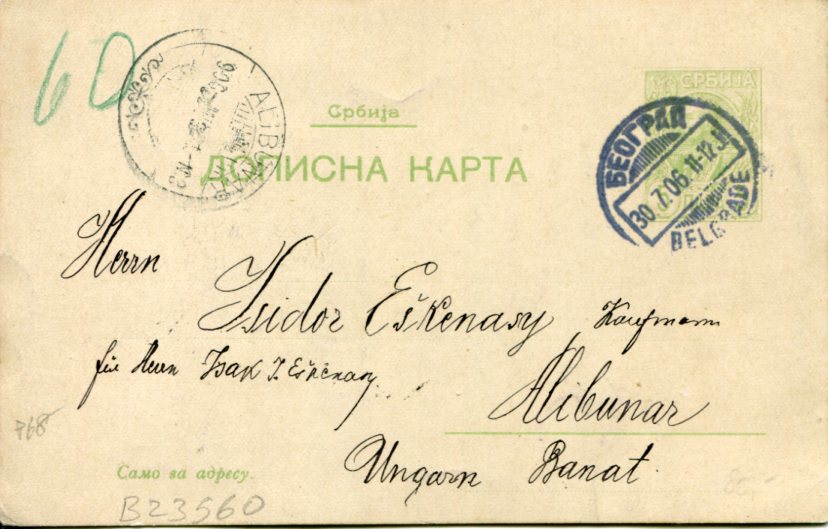 60
СРБИЈА
Србија
ДОПИСНА КАРТА
ALIBUNAR
БЕОГРАД
30.7.06.11-12
BELGRADE
Herrn
Isidor Eškenasy Kaufmann
für Herrn Isak I. Eškenasy
Alibunar
Ungarn Banat.
768
Само за адресу.
B23560